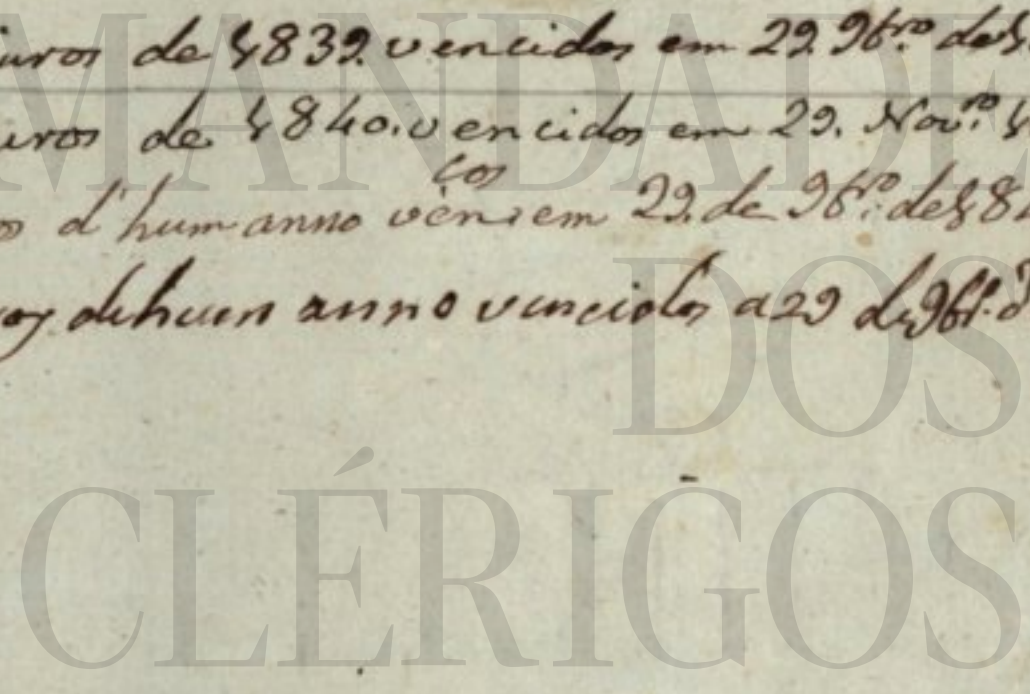 juros de 1839. vencidos em 29. 9br.º de 1
juros de 1840. vencidos em 29. Nov.ro 1
os d'hum anno vencos em 29. de 9br.º de 18
de hum anno vencidos a 29 de 9br.º
MANDADE
DOS
CLÉRIGOS